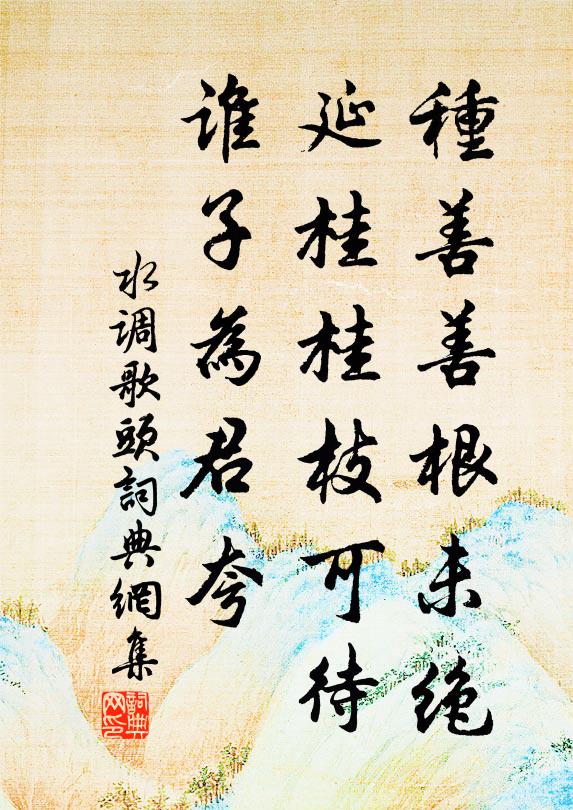 種善善根未绝
延桂桂枝可待
誰子為君夸
水调歌頭詞典網集
詞典
网印